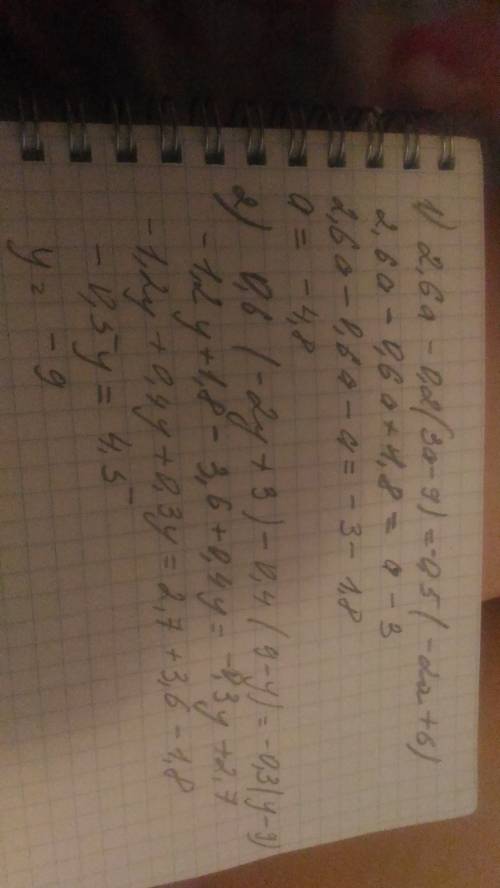 1) 2,6a - 0,2(3a-9) = -0,5(-2a+6)
2,6a - 0,6a + 1,8 = a - 3
2,6a - 0,6a - a = -3 - 1,8
a = -4,8
2) 0,6(-2y+3) - 0,4(9-y) = -0,3(y-9)
-1,2y + 1,8 - 3,6 + 0,4y = -0,3y + 2,7
-1,2y + 0,4y + 0,3y = 2,7 + 3,6 - 1,8
-0,5y = 4,5
y = -9